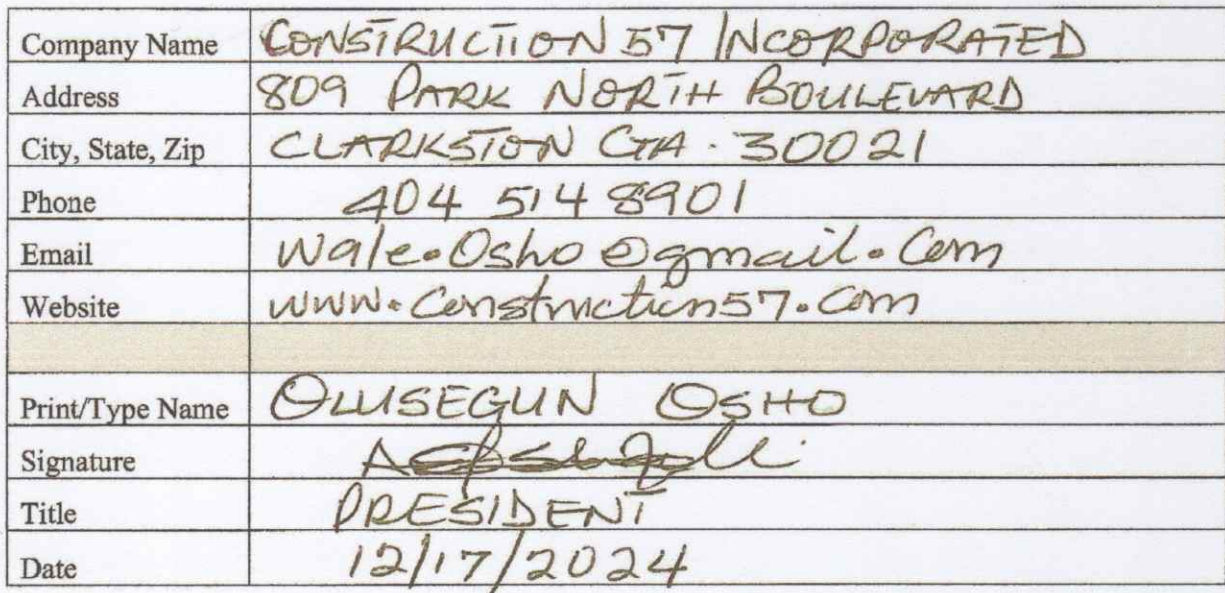 Company Name CONSTRUCTION 57 INCORPORATED
Address 809 PARK NORTH BOULEVARD
City, State, Zip CLARKSTON GA. 30021
Phone 404 514 8901
Email wale.Osho@gmail.Com
Website www.Construction57.Com
Print/Type Name OLUSEGUN OSHO
Signature
Title PRESIDENT
Date 12/17/2024